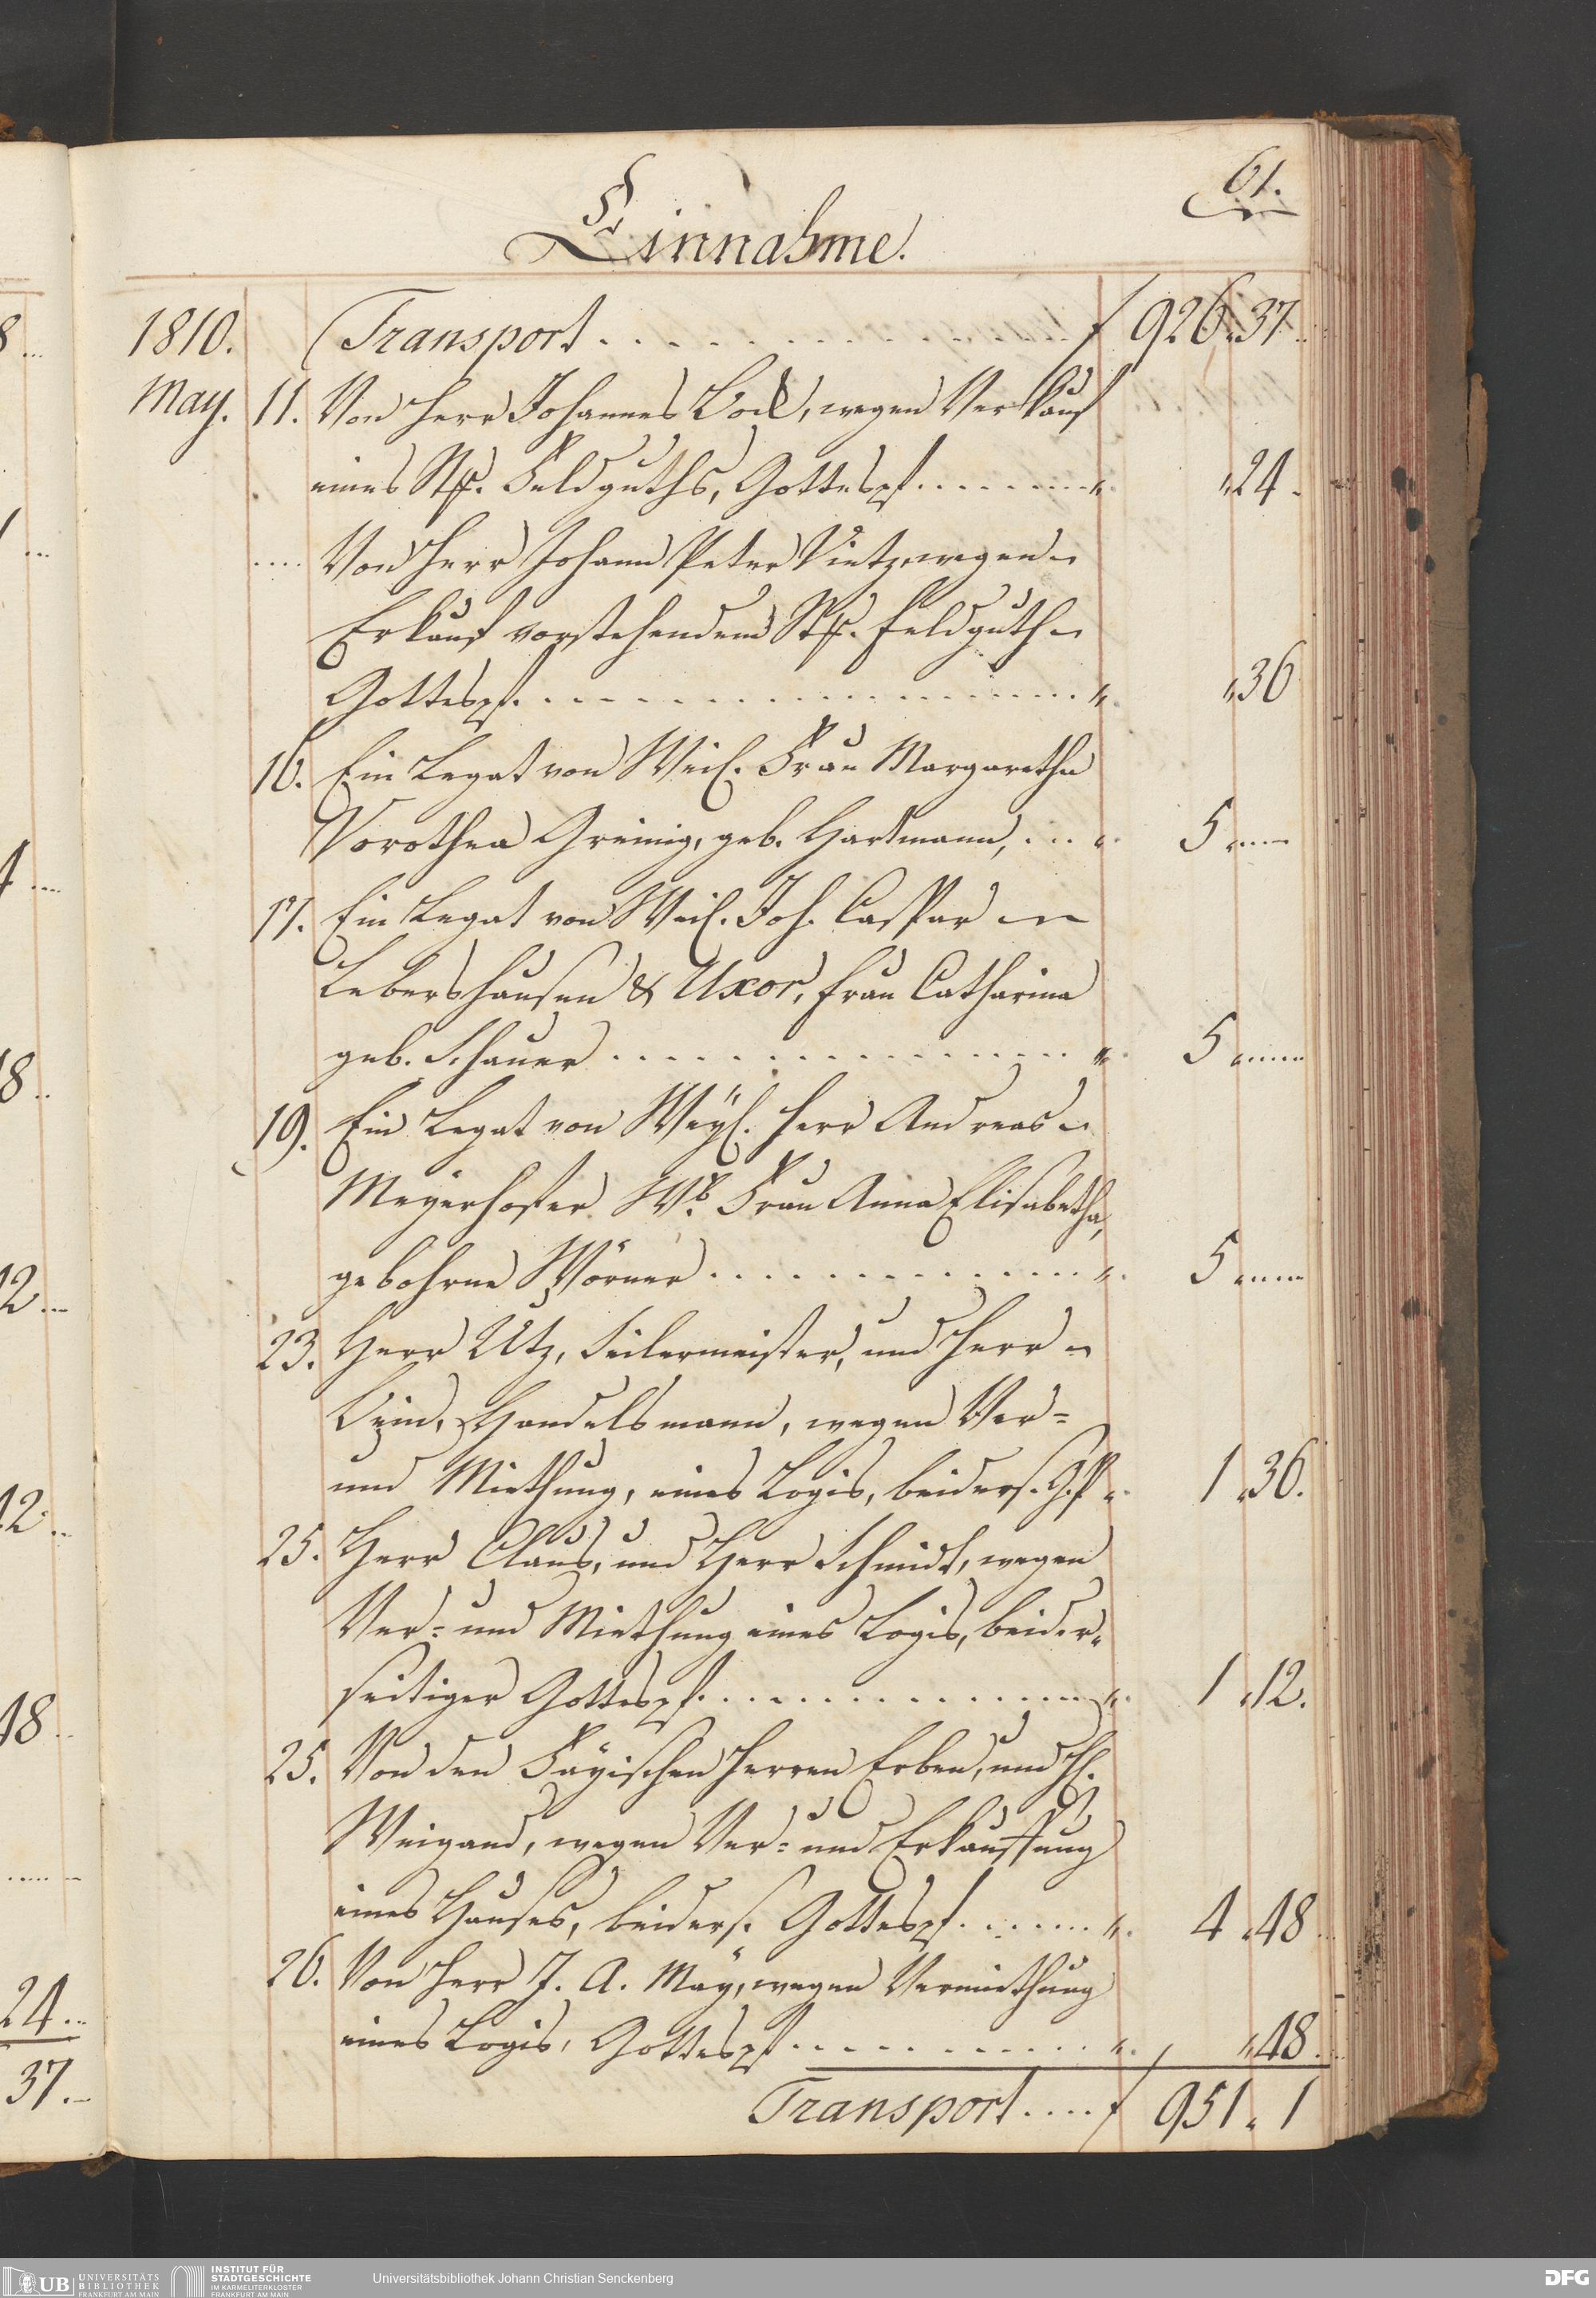 61.
Einnahme.
1810. Transport . . . . . . . . . . f 926 " 37
May. 11. Von Herr Johannes Bock, wegen Verkauf
eines Stk. Feldguths, Gottespf. . . . . . . " " 24
.... Von Herr Johann Peter Dietz, wegen
Erkauf vorstehendem Stk. Feldguth
Gottespf. . . . . . . . . . . " " 36
16. Ein Legat von Weil. Frau Margaretha
Dorothea Greinig, geb. Hartmann, . . . " 5 "
17. Ein Legat von Weil. Joh. Caspar
Lebershausen & Uxor, Frau Catharina
geb. Schauer . . . . . . . . . . " 5 "
19. Ein Legat von Weyl. Herr Andreas
Meyerhofer Wb. Frau Anna Elisabetha,
gebohrne Wörner . . . . . . . . . . " 5 "
23. Herr Utz, Seilermeister, und Herr
Handelsmann, wegen Ver=
und Miethung, eines Logis, beiders. G.pf " 1 " 36.
25. Herr Claus, und Herr Schmidt, wegen
Ver= und Miethung eines Logis, beider=
seitiger Gottespf. . . . . . . . . . . " 1 " 12.
25. Von den Fayischen Herren Erben, und H.
Weigand, wegen Ver= und Erkauffung
eines Hauses, beiders. Gottespf. . . . . . " 4 " 48
26. Von Herr J. A. May, wegen Vermiethung
eines Logis, Gottespf . . . . . . . . . . " " 48.
Transport . . . . f 951 " 1
8 ...
1 ...
4 ...
18 ..
12 ...
12 ..
18 ..
24 ..
37 ..
UB UNIVERSITÄTS
BIBLIOTHEK
FRANKFURT AM MAIN
INSTITUT FÜR
STADTGESCHICHTE
IM KARMELITERKLOSTER
FRANKFURT AM MAIN
Universitätsbibliothek Johann Christian Senckenberg
DFG